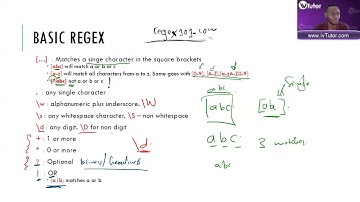 www.IvTutor.com
BASIC REGEX
regex101.com
[...] : Matches a singe character in the square brackets
[abc] will match a or b or c
[a-z] will match all characters from a to z. Same goes with [0-9], [A-Z], [a-zA-Z0-9]
[^abc] not a or b or c
. : any single character
\w : alphanumeric plus underscore. \W
\s : any whitespace character. \S – non whitespace
\d : any digit. \D for non digit
+ : 1 or more
* : 0 or more
\d
? : Optional
| OR
(a|b) matches a or b
abc
[abc]
Single
[ab]
abc 3 matches.
abc